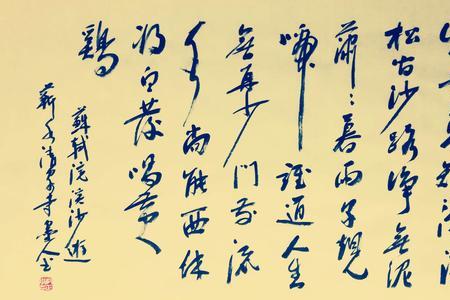 松間沙路淨無泥
蕭蕭暮雨子規
啼誰道人生
無再少門前流
水尚能西休
將白髮唱黃
雞
蘇軾浣溪沙遊
蘄水清泉寺人書